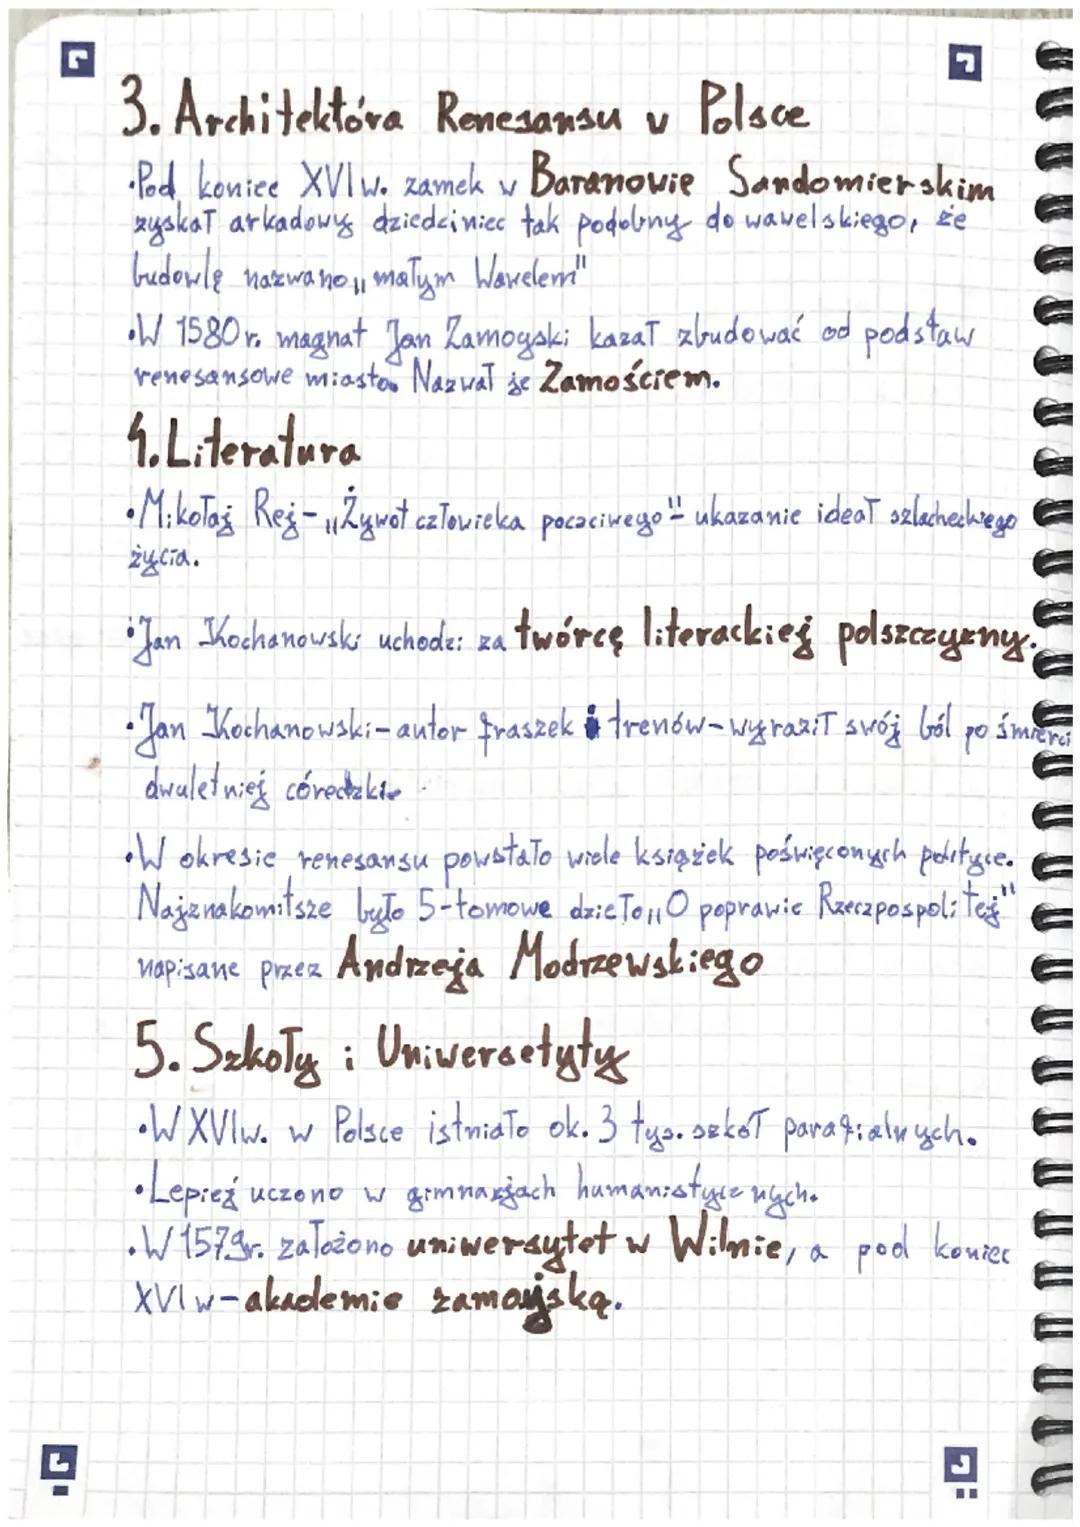 3. Architektóra Renesansu w Polsce
•Pod koniec XVI w. zamek w Baranowie Sandomierskim
zyskał arkadowy dziedziniec tak podobny do wawelskiego, że
budowlę nazwano „małym Wawelem"
•W 1580 r. magnat Jan Zamoyski kazał zbudować od podstaw
renesansowe miasto. Nazwał je Zamościem.
4. Literatura
•Mikołaj Rej - „Żywot człowieka poczciwego" - ukazanie ideał szlacheckiego
życia.
•Jan Kochanowski uchodzi za twórcę literackiej polszczyzny.
•Jan Kochanowski - autor fraszek i trenów - wyraził swój ból po śmierci
dwuletniej córeczki
•W okresie renesansu powstało wiele książek poświęconych polityce.
Najznakomitsze było 5-tomowe dzieło „O poprawie Rzeczpospolitej"
napisane przez Andrzeja Modrzewskiego
5. Szkoły i Uniwersetyty
•W XVI w. w Polsce istniało ok. 3 tys. szkół parafialnych.
•Lepiej uczono w gimnazjach humanistycznych.
•W 1579r. założono uniwersytet w Wilnie, a pod koniec
XVI w - akademie zamojską.